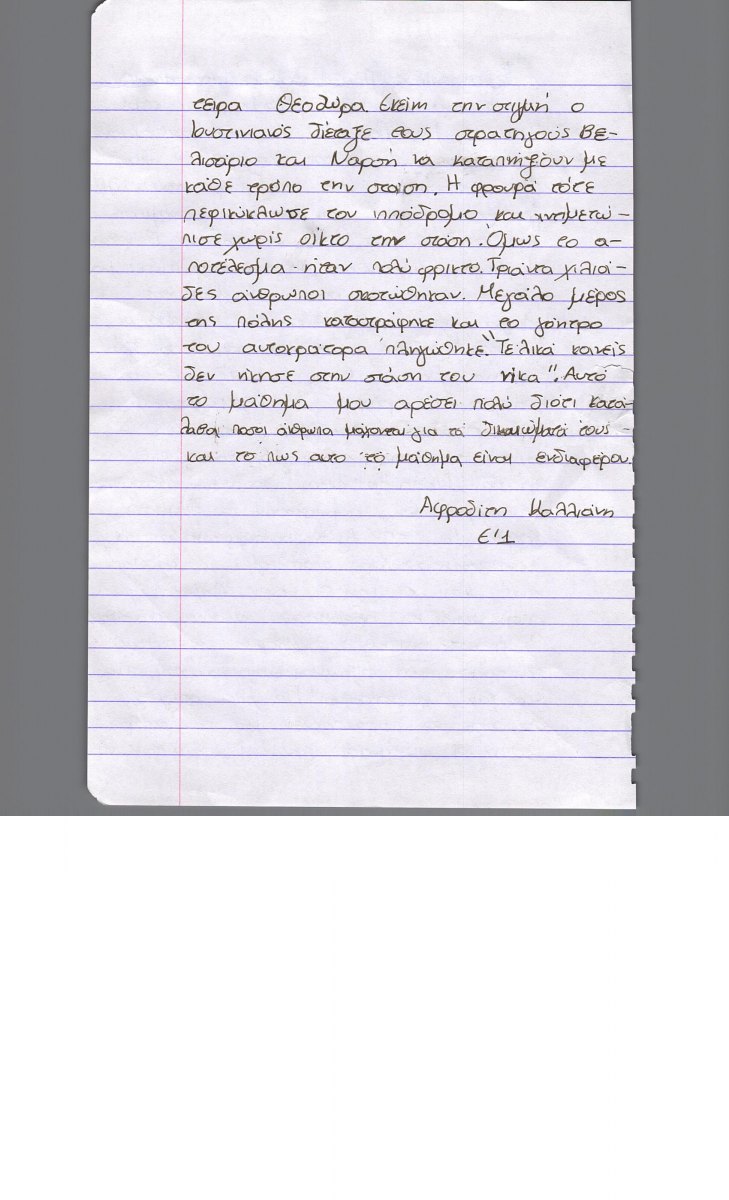 τειρα Θεοδώρα. Εκείνη την στιγμή ο
Ιουστινιανός διέταξε τους στρατηγούς Βε-
λισάριο και Ναρσή να καταπνίξουν με
κάθε τρόπο την στάση. Η φρουρά τότε
περικύκλωσε τον ιππόδρομο και αντιμετώ-
πισε χωρίς οίκτο την στάση. Όμως το α-
ποτέλεσμα ήταν πολύ φρικτο. Τριάντα χιλιά-
δες άνθρωποι σκοτώθηκαν. Μεγάλο μέρος
της πόλης καταστράφηκε και το γόητρο
του αυτοκράτορα πληγώθηκε. "Τελικά κανείς
δεν νίκησε στην στάση του νίκα". Αυτό
το μάθημα μου αρέσει πολύ διότι κατά-
λαβα πόσοι άνθρωποι μάχονται για τα δικαιώματά τους
και το πως αυτο το μάθημα είναι ενδιαφέρον.
Αφροδίτη Καλλιάνη
Ε'1